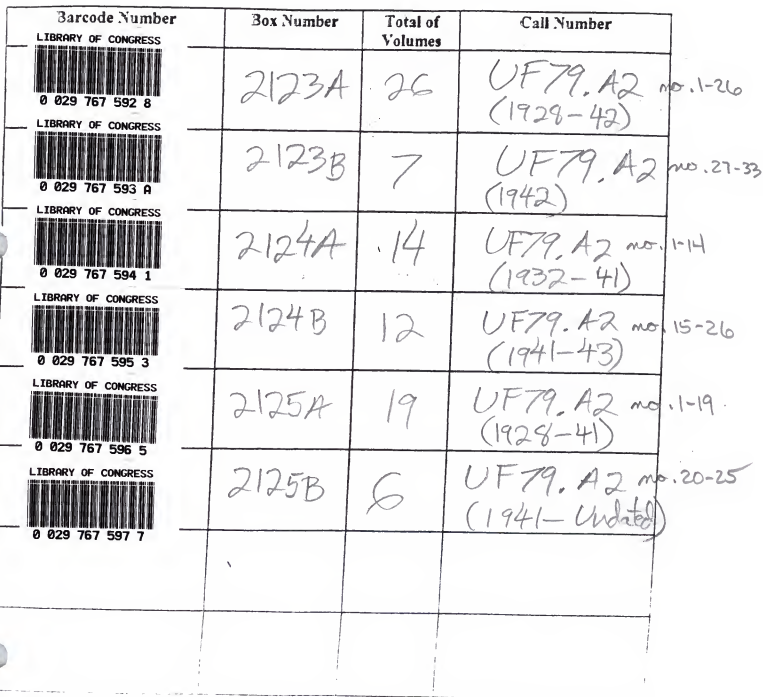 Barcode Number Box Number Total of Volumes Call Number
LIBRARY OF CONGRESS
0 029 767 592 8
2123A 26 UF79.A2 no.1-26
(1928-42)
LIBRARY OF CONGRESS
0 029 767 593 A
2123B 7 UF79.A2 no.27-33
(1942)
LIBRARY OF CONGRESS
0 029 767 594 1
2124A 14 UF79.A2 no.1-14
(1932-41)
LIBRARY OF CONGRESS
0 029 767 595 3
2124B 12 UF79.A2 no.15-26
(1941-43)
LIBRARY OF CONGRESS
0 029 767 596 5
2125A 19 UF79.A2 no.1-19
(1928-41)
LIBRARY OF CONGRESS
0 029 767 597 7
2125B 6 UF79.A2 no.20-25
(1941-Undated)